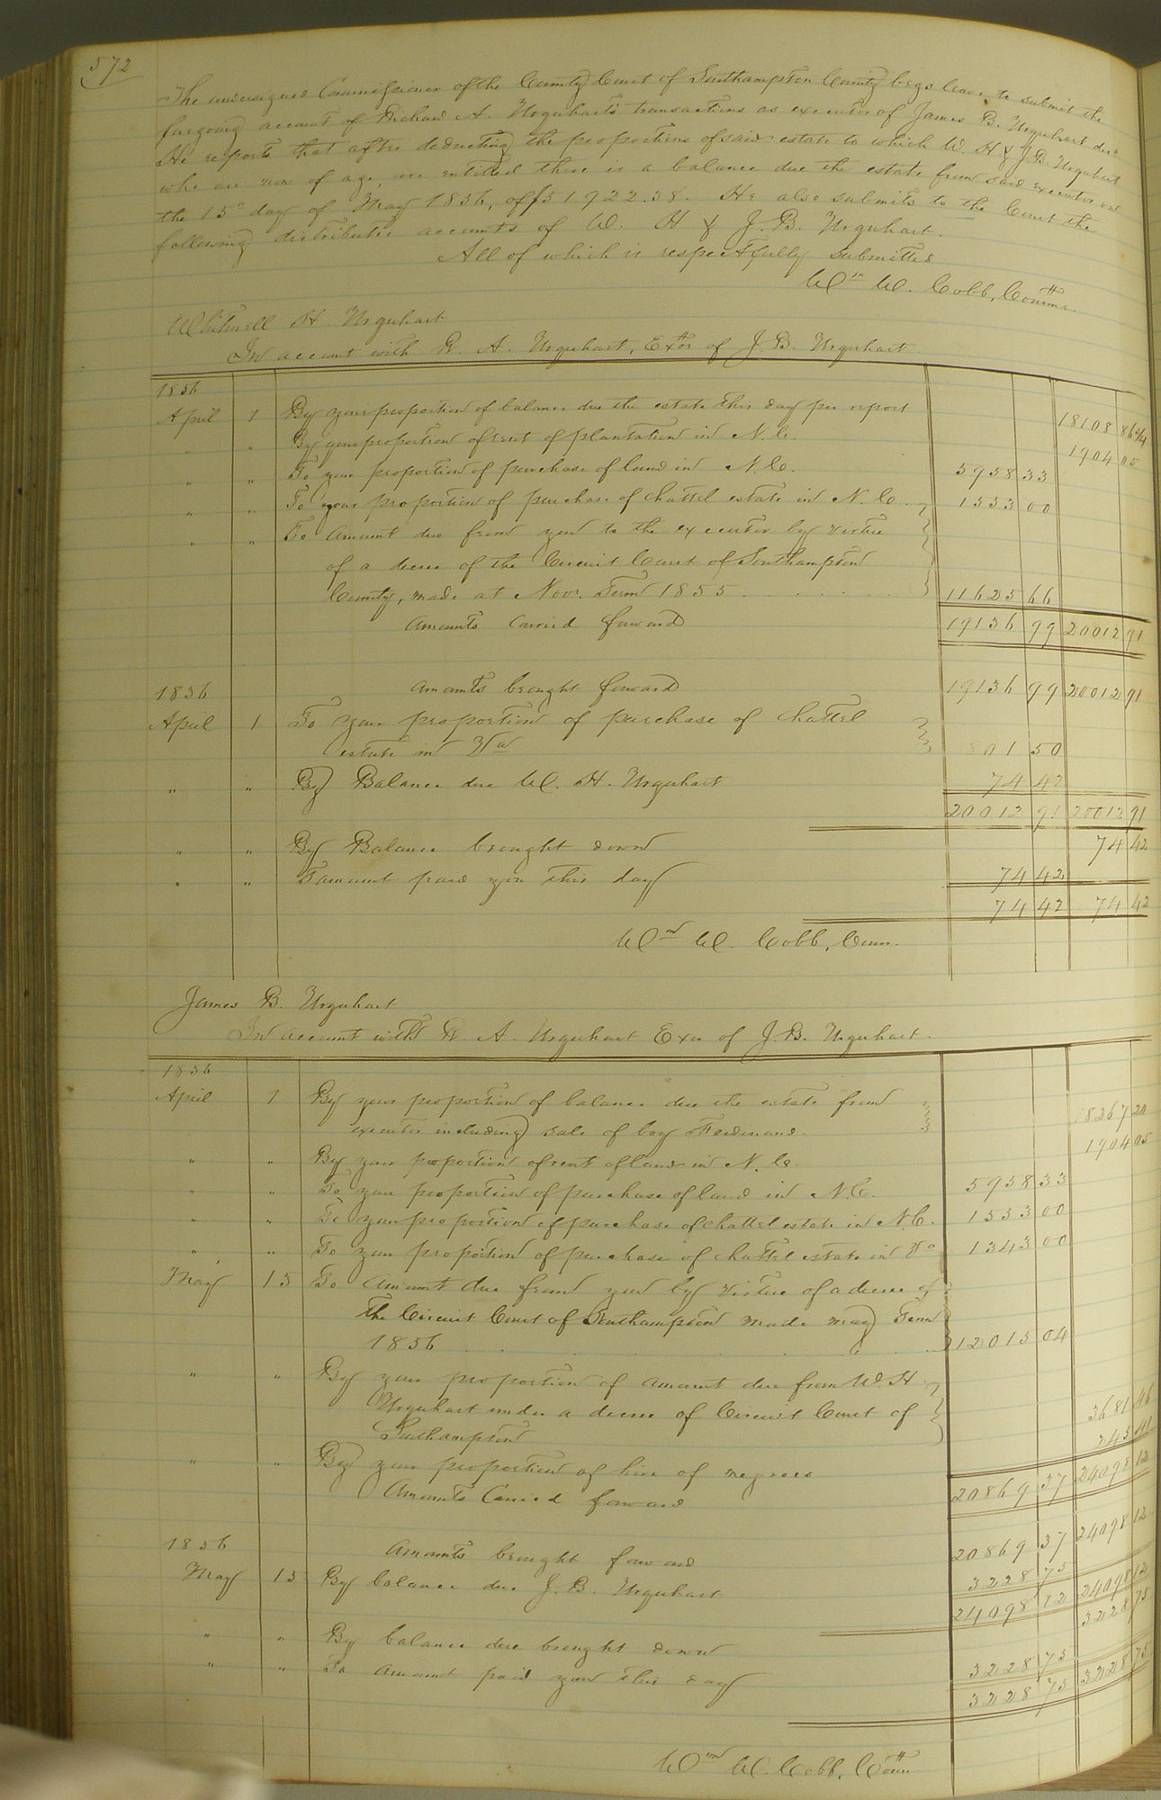 572
The undersigned Commissioner of the County Court of Southampton County begs leave to submit the
foregoing account of Richard A. Urquharts transactions as executor of James B. Urquhart dec.
He reports that after deducting the proportions of said estate to which W. H & J. B. Urquhart
who are now of age, are entitled there is a balance due the estate from said executor on
the 15th day of May 1856, of $51922.38. He also submits to the Court the
following distributive accounts of W. H & J. B. Urquhart.
All of which is respectfully submitted
Wm W. Cobb, Comm.
Whitmell H. Urquhart
In account with R. A. Urquhart, Extor of J. B. Urquhart.
1856
April 1 By your proportion of balance due the estate this day per report 18108 86
" " By your proportion of rent of plantation in N. C. 1904 05
" " To your proportion of purchase of land in N. C. 5958 33
" " To your proportion of purchase of chattel estate in N. C. 1553 00
" " To amount due from you to the executor by virtue
of a decree of the Circuit Court of Southampton
County, made at Nov. Term 1855 11625 66
Amounts Carried forward 19136 99 20012 91
1856 Amounts brought forward 19136 99 20012 91
April 1 To your proportion of purchase of chattel
estate in Va 801 50
" " By Balance due W. H. Urquhart 74 42
20012 91 20012 91
" " By Balance brought down 74 42
" " To amount paid you this day 74 42
74 42 74 42
Wm W. Cobb, Comm.
James B. Urquhart
In account with R. A. Urquhart Exor of J. B. Urquhart.
1856
April 1 By your proportion of balance due the estate from
executor including sale of boy Ferdinand. 18267 20
" " By your proportion of rent of land in N. C. 1904 05
" " To your proportion of purchase of land in N. C. 5958 33
" " To your proportion of purchase of chattel estate in N. C. 1553 00
" " To your proportion of purchase of chattel estate in Va 1343 00
May 15 To amount due from you by virtue of a decree of
the Circuit Court of Southampton made may Term
1856 12015 04
" " By your proportion of amount due from W. H
Urquhart under a decree of Circuit Court of
Southampton 3681 46
" " By your proportion of hire of negroes 245 41
Amounts Carried forward 20869 37 24098 12
1856 Amounts brought forward 20869 37 24098 12
May 15 By balance due J. B. Urquhart 3228 75
24098 12 24098 12
" " By balance due brought down 3228 75
" " To amount paid you this day 3228 75
3228 75 3228 75
Wm W. Cobb, Comm